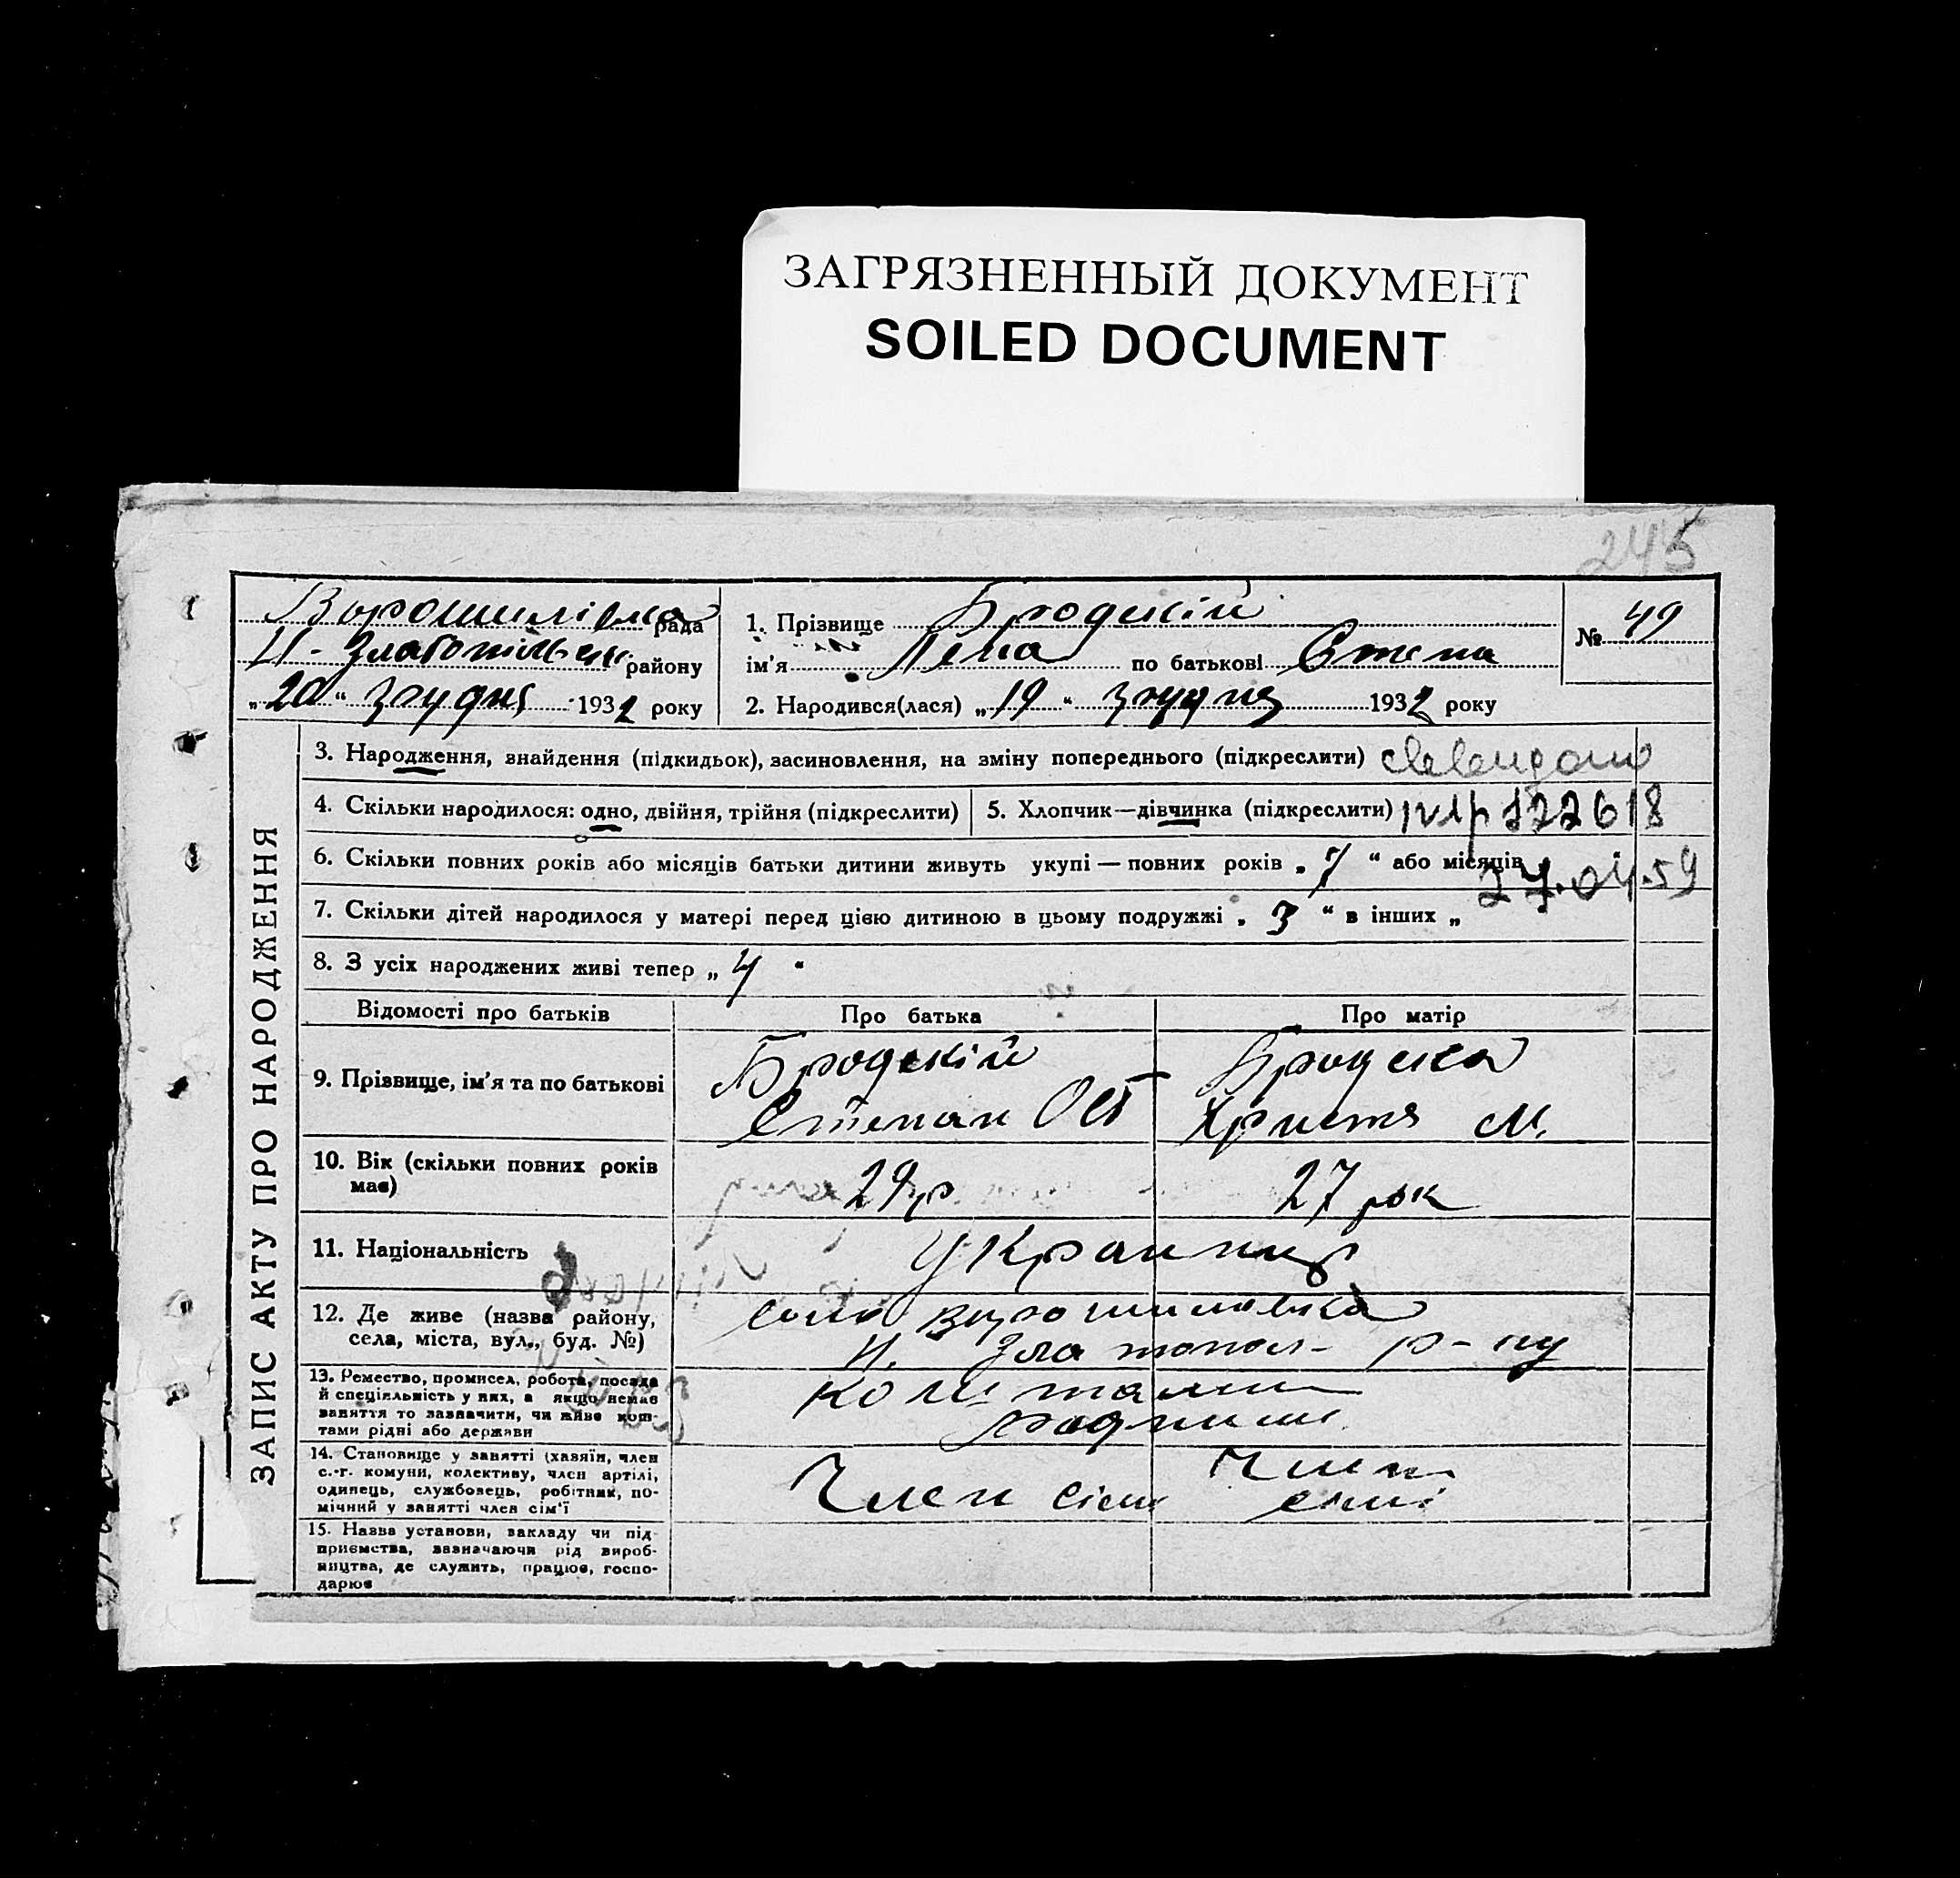 ЗАГРЯЗНЕННЫЙ ДОКУМЕНТ
SOILED DOCUMENT
245
Ворошилівка рада
Н-Златопільськ району
„20“ грудня 1932 року
1. Прізвище Бродскій
ім'я Лена по батькові Степа
2. Народився(лася) „19“ грудня 1932 року
№ 49
ЗАПИС АКТУ ПРО НАРОДЖЕННЯ
3. Народження, знайдення (підкидьок), засиновлення, на зміну попереднього (підкреслити)
4. Скільки народилося: одно, двійня, трійня (підкреслити)
5. Хлопчик—дівчинка (підкреслити) 122618
6. Скільки повних років або місяців батьки дитини живуть укупі — повних років „7“ або місяців
27.04.59
7. Скільки дітей народилося у матері перед цією дитиною в цьому подружжі „3“ в інших „
8. З усіх народжених живі тепер „4“
Відомості про батьків
Про батька
Про матір
9. Прізвище, ім'я та по батькові
Бродскій
Степан Ост
Бродска
Христя М.
10. Вік (скільки повних років
має)
29 р
27 рок
11. Національність
Украинц
12. Де живе (назва району,
села, міста, вул., буд. №)
село Ворошиловка
Н. Златопол- р-ну
13. Ремество, промисел, робота, посада
й спеціяльність у них, а якщо немає
заняття то зазначити, чи живе кош-
тами рідні або держави
14. Становище у занятті (хазяїн, член
с.-г. комуни, колективу, член артілі,
одинець, службовець, робітник, по-
мічний у занятті член сім'ї
Член сім
Член
сімі
15. Назва установи, закладу чи під-
приємства, зазначаючи рід вироб-
ництва, де служить, працює, госпо-
дарює